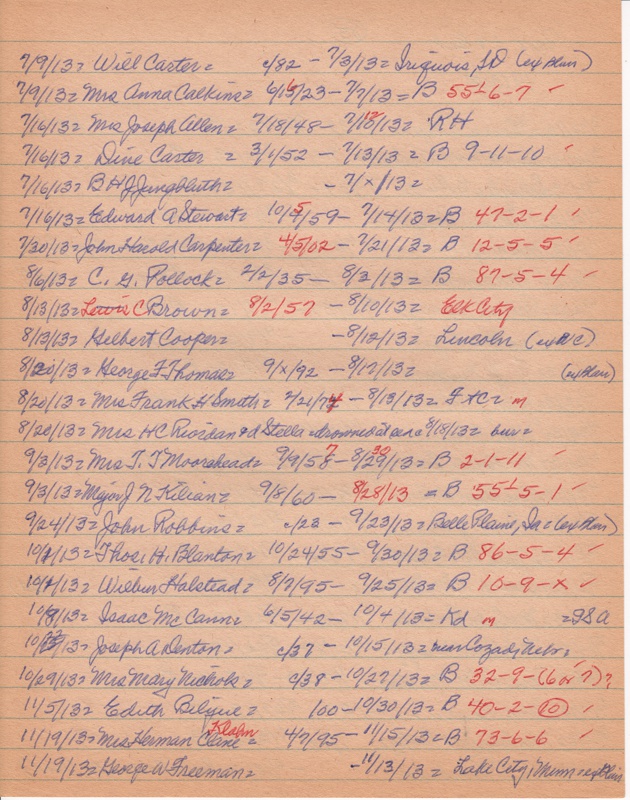 7/9/13= Will Carter= c/82 - 7/3/13= Iriquois, SD (ex Blair)
7/9/13= Mrs Anna Calkins= 6/15/23 - 7/7/13= B 55½-6-7 ✓
7/16/13= Mrs Joseph Allen= 7/18/48 - 7/12/13= RH
7/16/13= Dine Carter = 3/1/52 - 7/13/13= B 9-11-10 ✓
7/16/13= B H J Jungbluth= - 7/x/13=
7/16/13= Edward A Stewart= 10/5/59 - 7/14/13= B 47-2-1 ✓
7/30/13= John Harold Carpenter= 4/5/02 - 7/21/13= B 12-5-5 ✓
8/6/13= C. G. Pollock= 2/2/35 - 8/2/13= B 87-5-4 ✓
8/13/13= Lewis C Brown= 8/2/57 - 8/10/13= Elk City
8/13/13= Gilbert Cooper= - 8/12/13= Lincoln (ex W/C)
8/20/13= George F Thomas= 9/x/92 - 8/17/13= (ex Blair)
8/20/13= Mrs Frank H Smith= 2/21/74 - 8/13/13= FtC= m
8/20/13= Mrs HC Riordan & d Stella = drowned at sea 8/18/13=
9/3/13= Mrs T. T Moorehead= 9/9/57 - 8/30/13= B 2-1-11 ✓
9/3/13= Major J N Kilian= 9/8/60 - 8/28/13 = B 55½-5-1 ✓
9/24/13= John Robbins= c/23 - 9/23/13= Belle Plaine, Ia= (ex Blair)
10/1/13= Thos. H. Blanton= 10/24/55 - 9/30/13= B 86-5-4 ✓
10/1/13= Wilbur Halstead= 8/7/95 - 9/25/13= B 10-9-x ✓
10/8/13= Isaac McCann= 6/5/42 - 10/4/13= Kd m =98A
10/ /13= Joseph A Denton= c/37 - 10/15/13= near Cozad, Nebr=
10/29/13= Mrs Mary Nichols= c/38 - 10/27/13= B 32-9-(6 or 7)?
11/5/13= Edith Bilyue= 100 - 10/30/13= B 40-2-10 ✓
11/19/13= Mrs Herman Klahn= 4/7/95 - 11/15/13= B 73-6-6 ✓
11/19/13= George W Freeman= - 11/13/13= Lake City, Minn= ex Blair